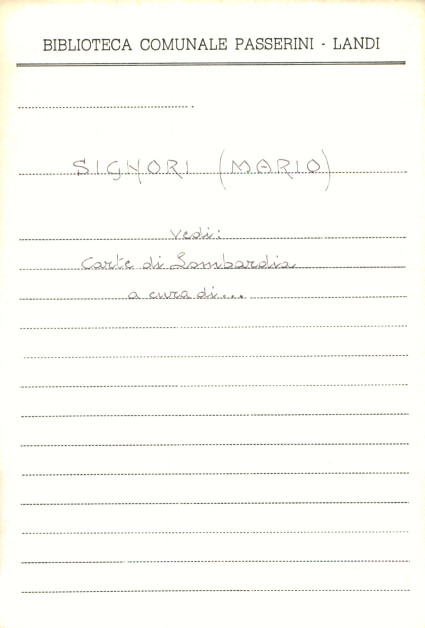 BIBLIOTECA COMUNALE PASSERINI - LANDI
SIGNORI (MARIO)
vedi:
Carte di Lombardia
a cura di...